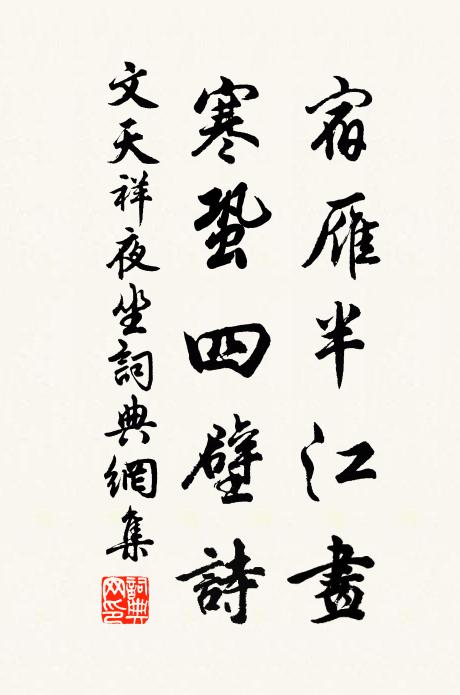 宿雁半江畫
寒蛩四壁詩
文天祥夜坐詞典網集
詞典网印